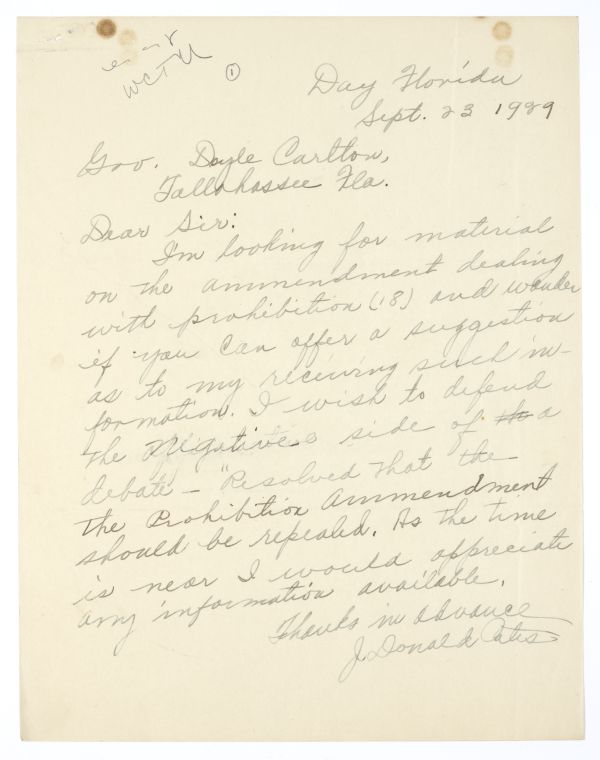 WCTU
①
Day Florida
Sept. 23 1929
Gov. Doyle Carlton,
Tallahassee Fla.
Dear Sir:
I'm looking for material
on the ammendment dealing
with prohibition (18) and wonder
if you can offer a suggestion
as to my receiving such in-
formation. I wish to defend
the Negative side of th a
debate - "Resolved that the
the Prohibition Ammendment
should be repealed. As the time
is near I would appreciate
any information available.
Thanks in advance
J. Donald